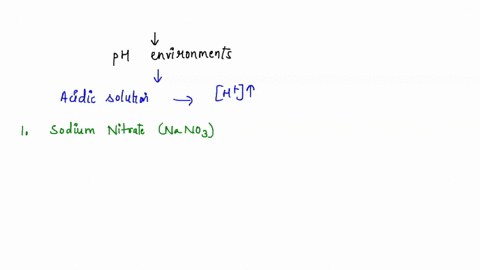 ↓
pH environments
↓
Acidic solution → [H⁺]↑
1. Sodium Nitrate (NaNO₃)